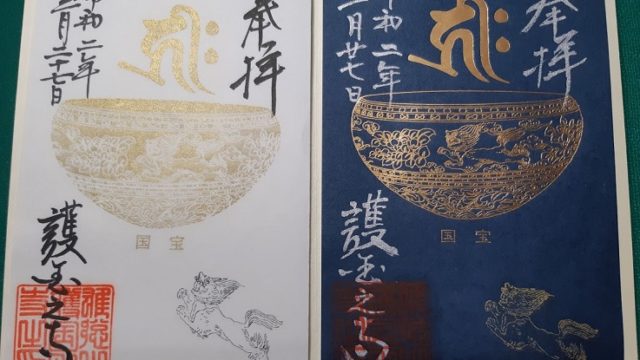 奉拝
令和二年
月二十七日
国宝
護国之寺
奉拝
令和二年
月廿七日
国宝
護国之寺